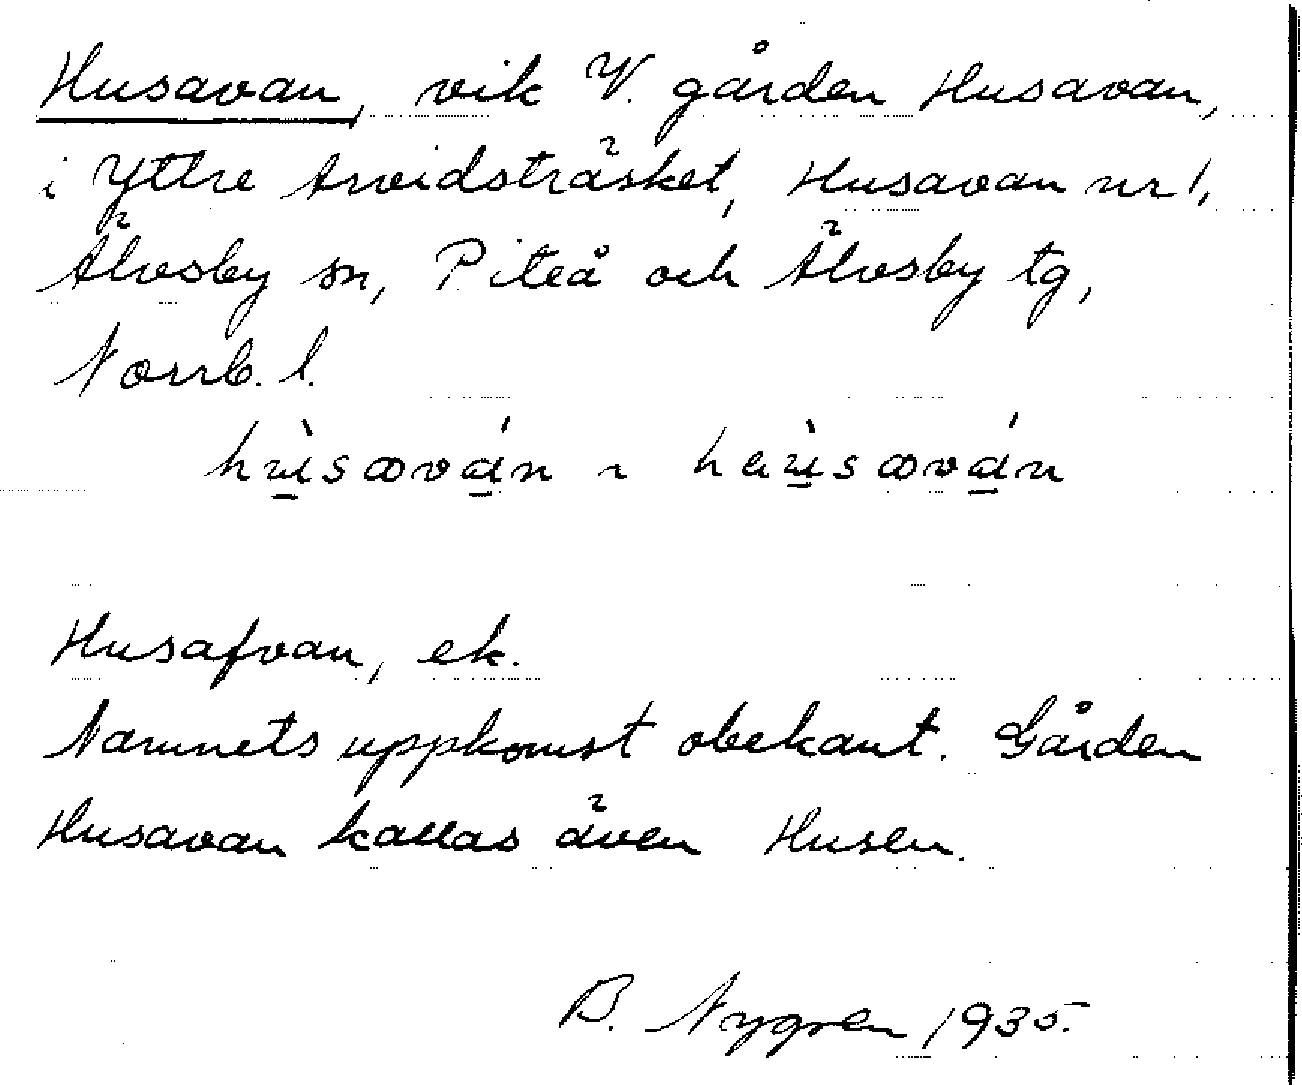 Husavan, vik V. gården Husavan,
i Yttre Arvidsträsket, Husavan nr 1,
Älvsby sn, Piteå och Älvsby tg,
Norrb. l.
hù̲sɷvá̲n ~ haù̲sɷvá̲n
Husafvan, ek.
Namnets uppkomst obekant. Gården
Husavan kallas även Husen.
B. Nygren 1935.